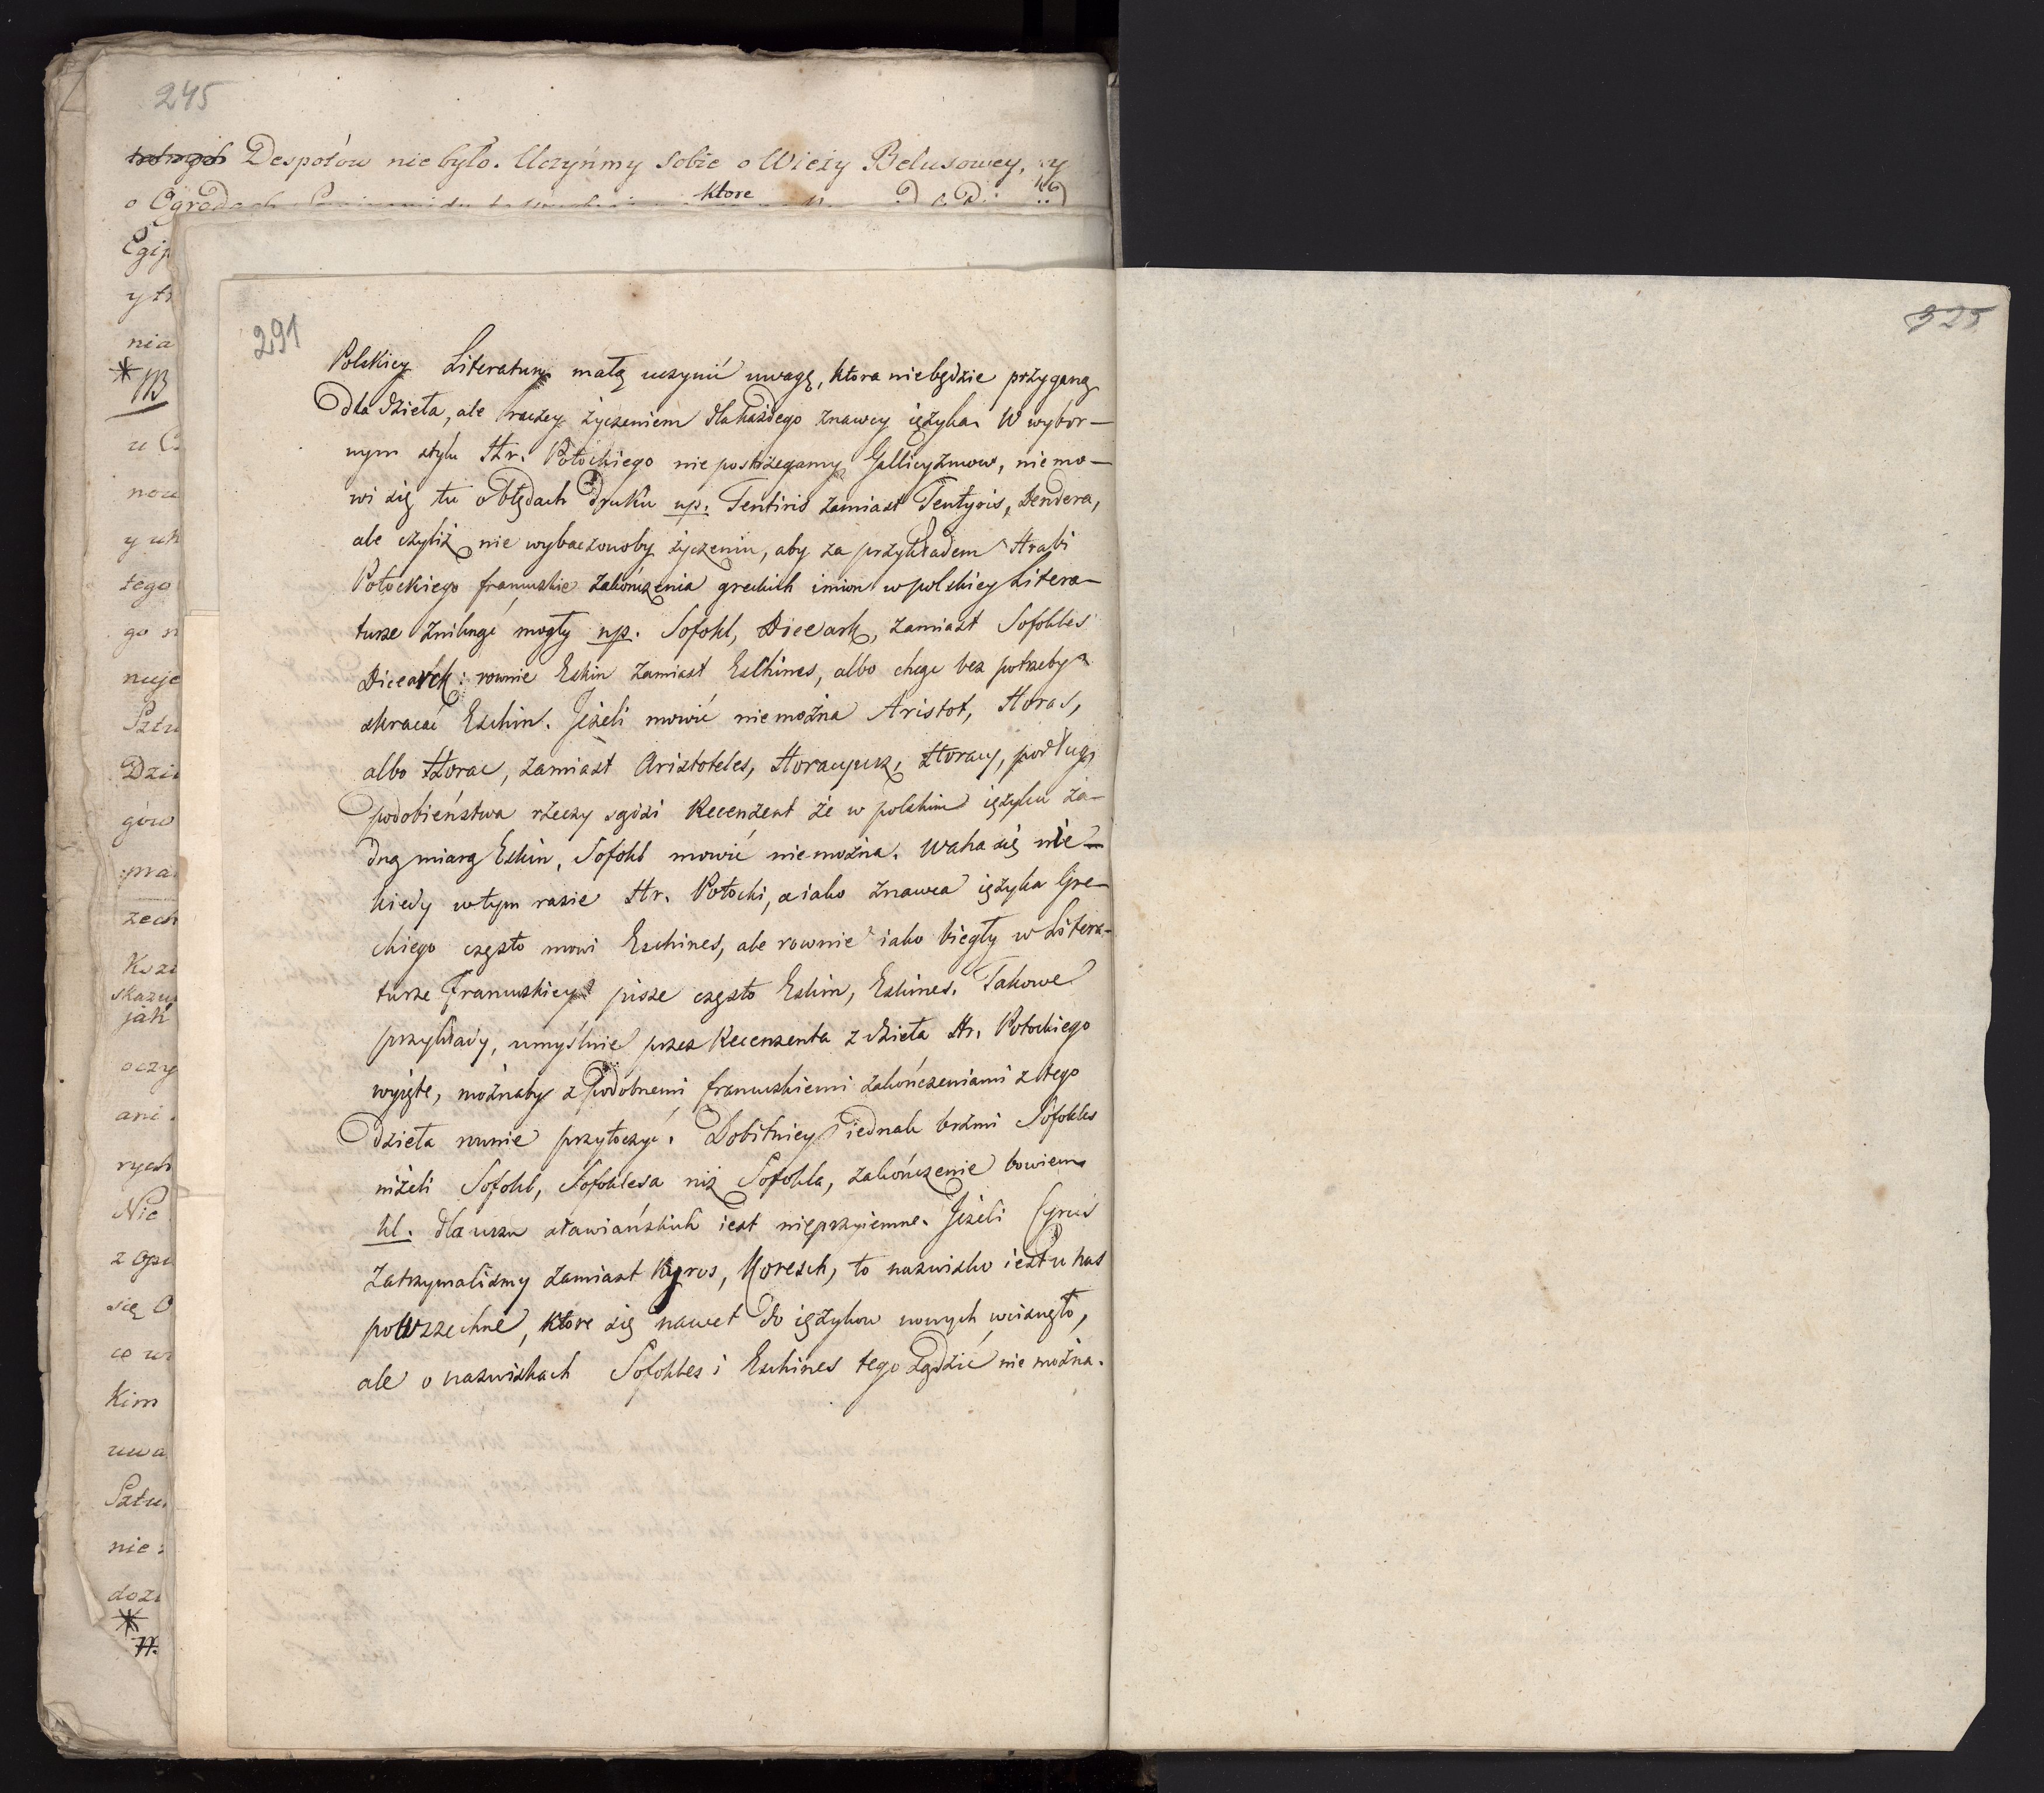 245
Despotów nie było. Uczyńmy sobie o Wieży Belusowey, y
które
o Ogrodach
Egip
y tr
nia
NB
u C
now
y uk
tego
go n
nuje
Sztu
Dzi
gów
pra
zech
Kozi
skazu
jak
oczy
ani
rych
Nie
z opi
się O
co w
kim
uwa
Sztu
nie
dozi
291
325
Polskiey Literatury małą uczynić uwagę, która niebędzie przyganą
dla dzieła, ale raczey życzeniem dla każdego znawcy ięzyka. W wybor-
nym stylu Hr. Potockiego nie postrzegamy Gallicyzmow, nie mo-
wi się tu o błędach druku np. Tentiris zamiast Tentyris, Dendera,
ale czyliż nie wybaczonoby życzeniu, aby za przykładem Hrabi
Potockiego francuskie zakończenia greckich imion w polskiey Litera-
turze zniknąć mogły np. Sofokl, Diceark, zamiast Sofokles
Dicearch: rownie Eskin zamiast Eschines, albo chcąc bez potrzeby
skracać Eschin. Jeżeli mowić niemożna Aristot, Horas,
albo Horac, zamiast Aristoteles, Horacyusz, Horacy, podług
podobieństwa rzeczy sądzi Recenzent że w polskim ięzyku ża-
dną miarą Eskin, Sofokl mowić niemożna. Waha się nie-
kiedy w tym razie Hr. Potocki, a iako znawca ięzyka Gre-
ckiego często mowi Eschines, ale rownie iako biegły w Litera-
turze Francuskiey pisze często Eskin, Eskines. Takowe
przykłady, umyślnie przez Recenzenta z dzieła Hr. Potockiego
wyięte, możnaby z podobnemi francuskiemi zakończeniami z tego
dzieła rownie przytoczyć. Dobitniey iednak brzmi Sofokles
niżeli Sofokl, Sofoklesa niż Sofokla, zakończenie bowiem
kl. dla uszu sławiańskich iest nieprzyiemne. Jeżeli Cyrus
zatrzymaliśmy zamiast Kyros, Koresch, to nazwisko iest u nas
powszechne, które się nawet do ięzykow nowych wcisnęło,
ale o nazwiskach Sofokles i Eschines tego zgodzić nie można.